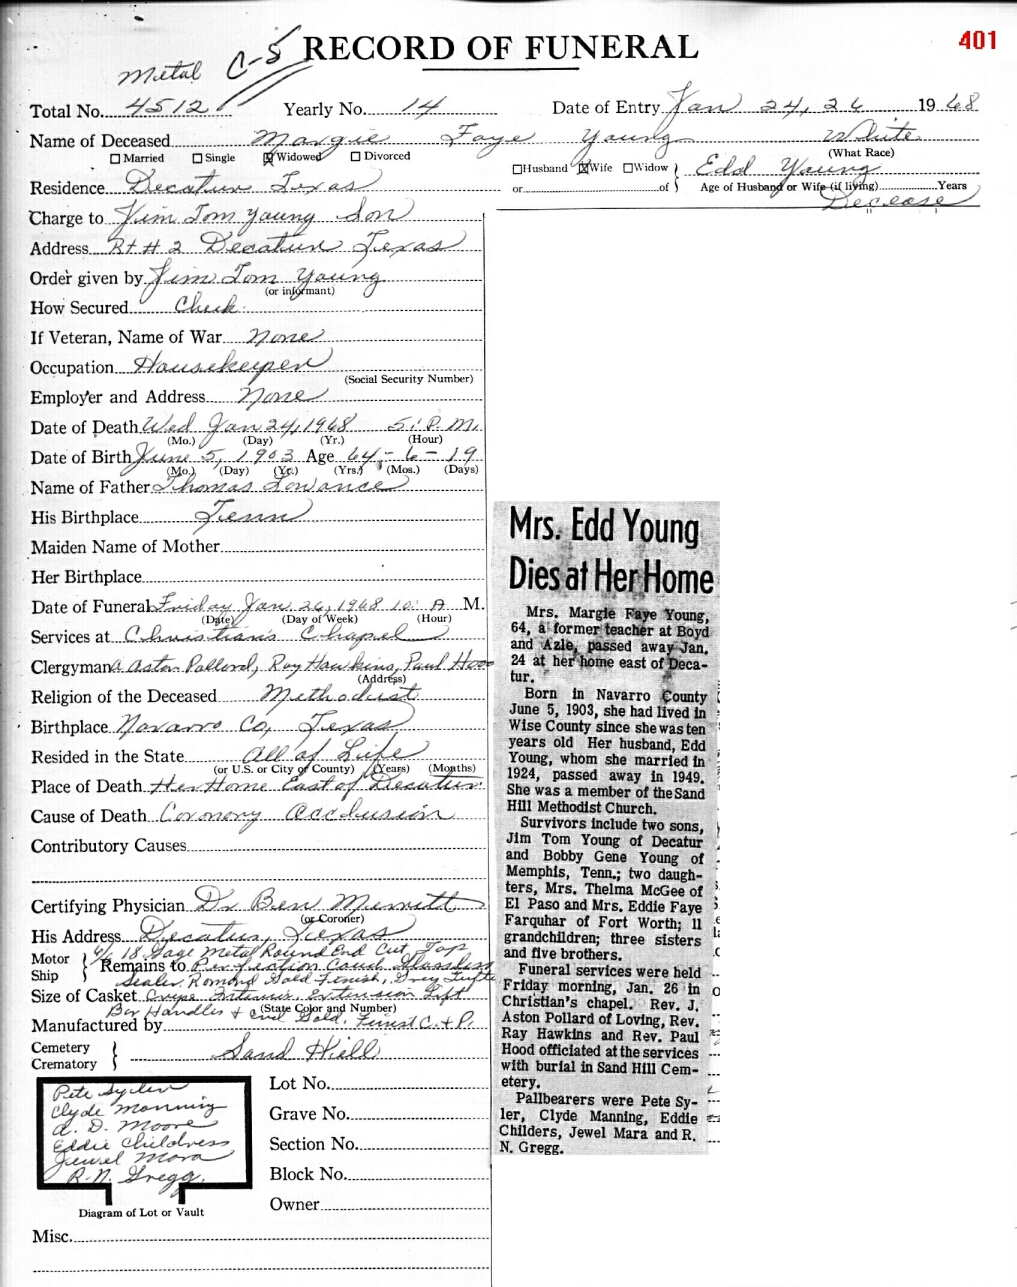 401
RECORD OF FUNERAL
Metal C-S
Total No. 4512 Yearly No. 14 Date of Entry Jan 24, 26 1968
Name of Deceased Margie Faye Young White
(What Race)
Married Single Widowed Divorced
Husband Wife Widow
or of
Edd Young
Age of Husband or Wife (if living) Years
Decease
Residence Decatur Texas
Charge to Jim Tom Young Son
Address Rt # 2 Decatur Texas
Order given by Jim Tom Young
(or informant)
How Secured Check
If Veteran, Name of War None
Occupation Housekeeper
(Social Security Number)
Employer and Address None
Date of Death Wed Jan 24, 1968 5: P. M.
(Mo.) (Day) (Yr.) (Hour)
Date of Birth June 5, 1903 Age 64 - 6 - 19
(Mo.) (Day) (Yr.) (Yrs.) (Mos.) (Days)
Name of Father Thomas Lowance
His Birthplace Tenn
Maiden Name of Mother
Her Birthplace
Date of Funeral Friday Jan 26, 1968 10: A M.
(Date) (Day of Week) (Hour)
Services at Christian's Chapel
Clergyman Aston Pollard, Ray Hawkins, Paul Hoo
(Address)
Religion of the Deceased Methodist
Birthplace Navarro Co, Texas
Resided in the State All of Life
(or U.S. or City of County) (Years) (Months)
Place of Death Her Home East of Decatur
Cause of Death Cornory Acclusion
Contributory Causes
Certifying Physician Dr Ben Merritt
(or Coroner)
His Address Decatur, Texas
6/6 18 Gage Metal Round End Cut Top
Motor
Ship
Remains to Perfection Coud Glassless
Sealer, Romond Gold Finish, Grey Tufte
Size of Casket Crepe Interior, Extension Lift
(State Color and Number)
Bar Handles + End Gold. Finist C. + P.
Manufactured by
Cemetery
Crematory
Sand Hill
Pete Syler
Clyde Manning
A. D. Moore
Eddie Childress
Jewel Mara
R. N. Gregg
Diagram of Lot or Vault
Lot No.
Grave No.
Section No.
Block No.
Owner
Misc.
Mrs. Edd Young
Dies at Her Home
Mrs. Margie Faye Young,
64, a former teacher at Boyd
and Azle, passed away Jan.
24 at her home east of Deca-
tur.
Born in Navarro County
June 5, 1903, she had lived in
Wise County since she was ten
years old Her husband, Edd
Young, whom she married in
1924, passed away in 1949.
She was a member of the Sand
Hill Methodist Church.
Survivors include two sons,
Jim Tom Young of Decatur
and Bobby Gene Young of
Memphis, Tenn.; two daugh-
ters, Mrs. Thelma McGee of
El Paso and Mrs. Eddie Faye
Farquhar of Fort Worth; 11
grandchildren; three sisters
and five brothers.
Funeral services were held
Friday morning, Jan. 26 in
Christian's chapel. Rev. J.
Aston Pollard of Loving, Rev.
Ray Hawkins and Rev. Paul
Hood officiated at the services
with burial in Sand Hill Cem-
etery.
Pallbearers were Pete Sy-
ler, Clyde Manning, Eddie
Childers, Jewel Mara and R.
N. Gregg.